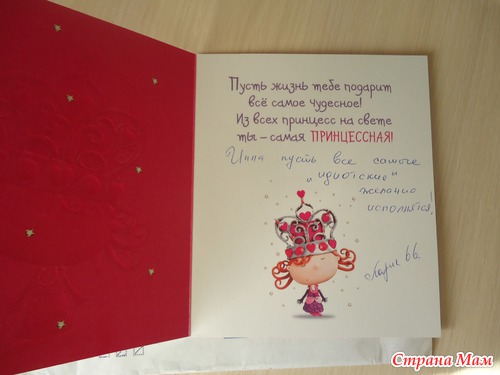 Пусть жизнь тебе подарит
всё самое чудесное!
Из всех принцесс на свете
ты – самая ПРИНЦЕССНАЯ!
Инна пусть все самые
"идиотские"
желания
исполнятся!
Страна Мам